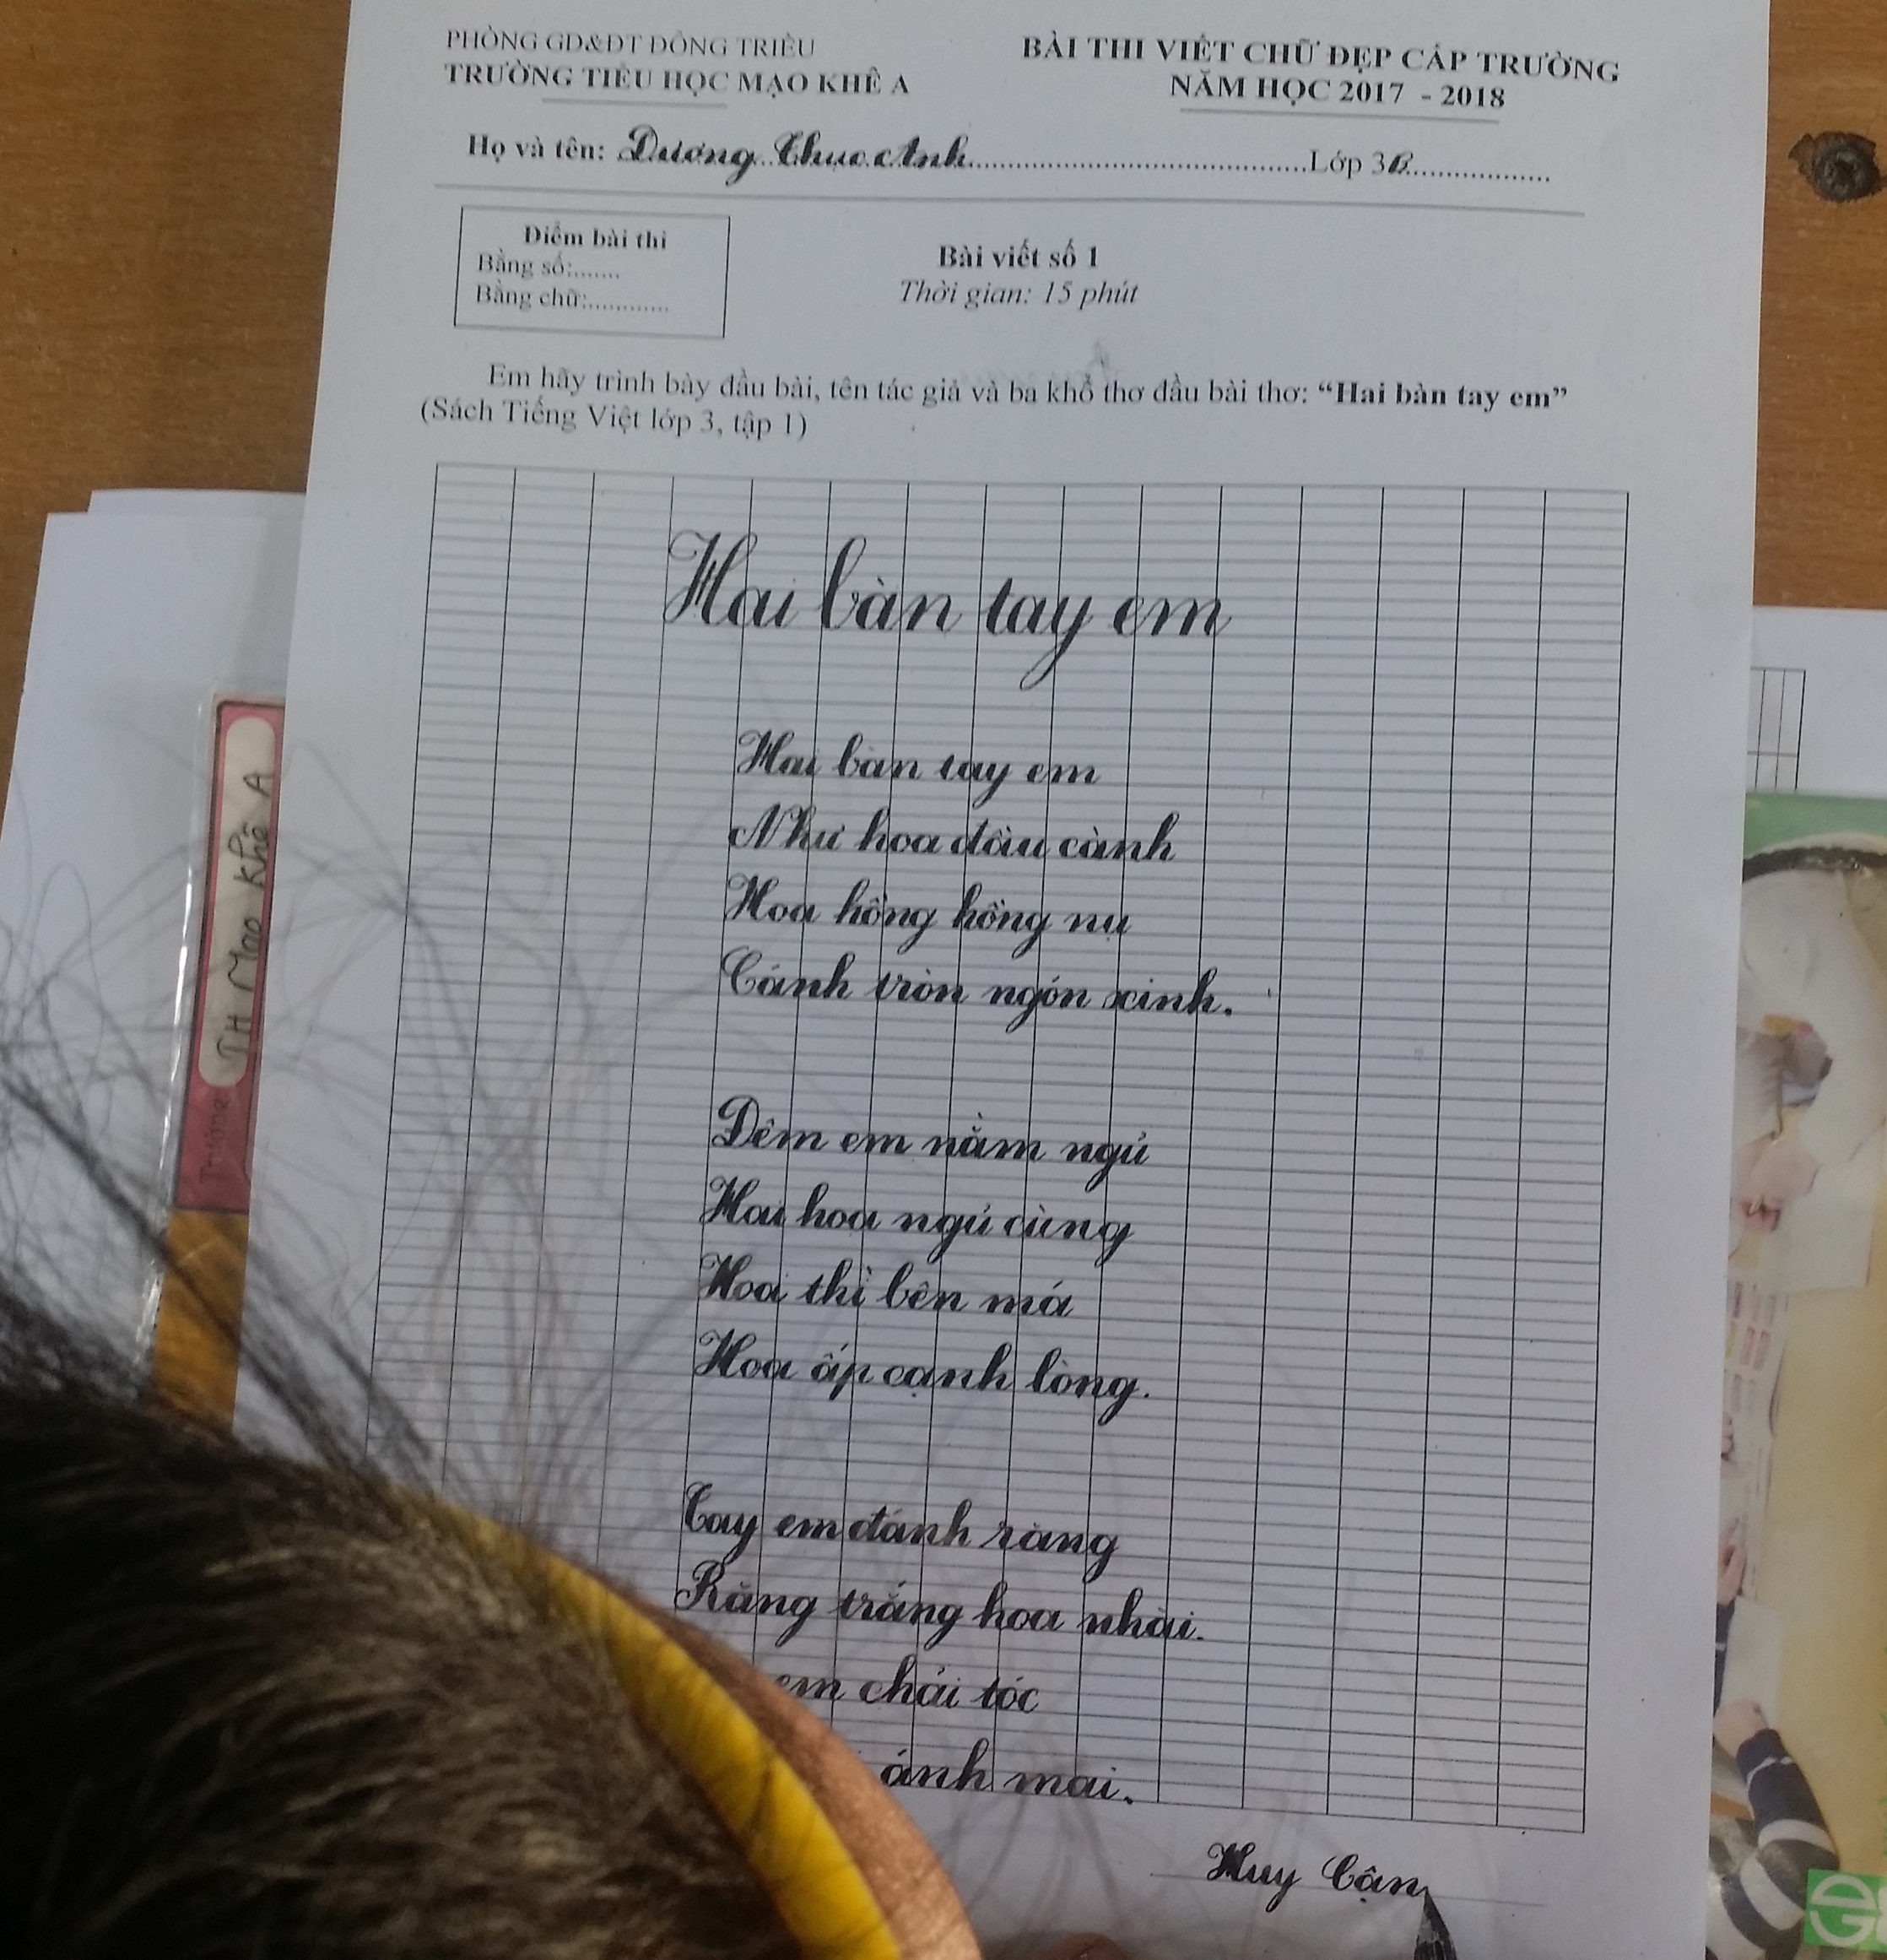 PHÒNG GD&ĐT ĐÔNG TRIỀU
TRƯỜNG TIỂU HỌC MẠO KHÊ A
BÀI THI VIẾT CHỮ ĐẸP CẤP TRƯỜNG
NĂM HỌC 2017 - 2018
Họ và tên: Dương Thục Anh Lớp 3B
Điểm bài thi
Bằng số:.......
Bằng chữ:.............
Bài viết số 1
Thời gian: 15 phút
Em hãy trình bày đầu bài, tên tác giả và ba khổ thơ đầu bài thơ: “Hai bàn tay em”
(Sách Tiếng Việt lớp 3, tập 1)
Hai bàn tay em
Hai bàn tay em
Như hoa đầu cành
Hoa hồng hồng nụ
Cánh tròn ngón xinh.
Đêm em nằm ngủ
Hai hoa ngủ cùng
Hoa thì bên má
Hoa ấp cạnh lòng.
Tay em đánh răng
Răng trắng hoa nhài.
em chải tóc
ánh mai.
Huy Cận
Trường
TH Mạo Khê A